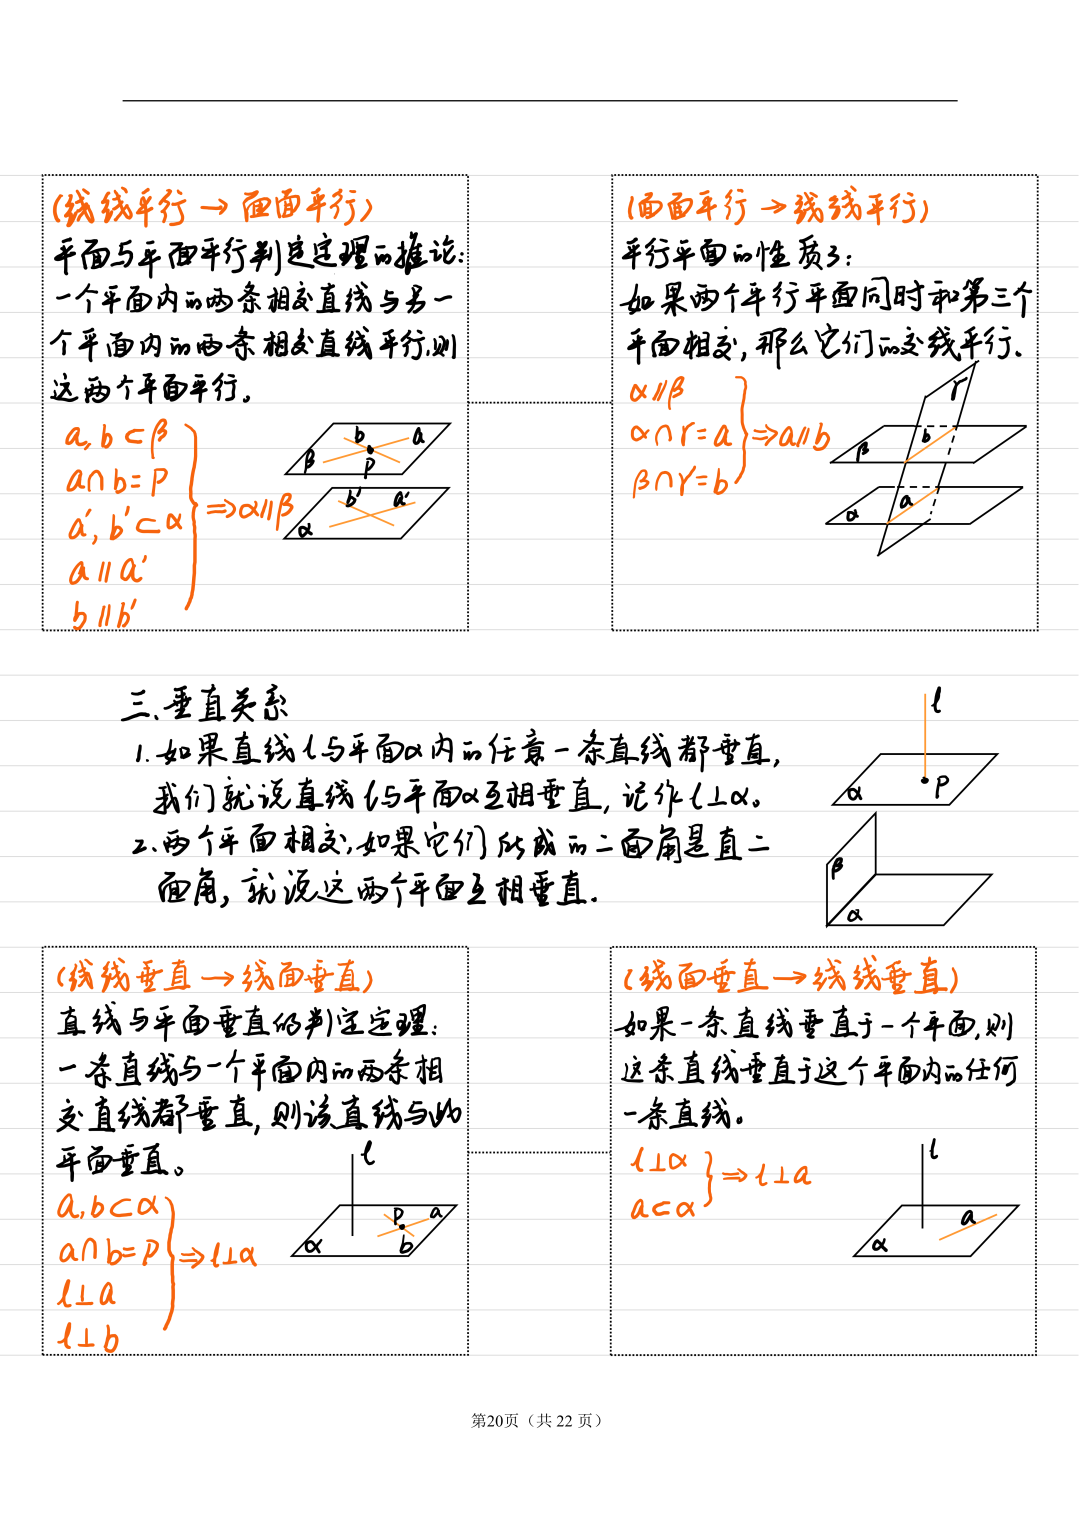 (线线平行→面面平行)
平面与平面平行判定定理的推论:
一个平面内的两条相交直线与另一
个平面内的两条相交直线平行,则
这两个平面平行。
a,b⊂β
a∩b=P
a′,b′⊂α
a∥a′
b∥b′
⇒α∥β
b a
β P
b′ a′
α
(面面平行→线线平行)
平行平面的性质3:
如果两个平行平面同时和第三个
平面相交,那么它们的交线平行.
α∥β
α∩γ=a
β∩γ=b
⇒a∥b
γ
β b
α a
三、垂直关系
1.如果直线l与平面α内的任意一条直线都垂直,
我们就说直线l与平面α互相垂直,记作l⊥α。
2.两个平面相交,如果它们所成的二面角是直二
面角,就说这两个平面互相垂直.
l
α P
β
α
(线线垂直→线面垂直)
直线与平面垂直的判定定理:
一条直线与一个平面内的两条相
交直线都垂直,则该直线与此
平面垂直。
a,b⊂α
a∩b=P
l⊥a
l⊥b
⇒l⊥α
l
P a
α b
(线面垂直→线线垂直)
如果一条直线垂直于一个平面,则
这条直线垂直于这个平面内的任何
一条直线。
l⊥α
a⊂α
⇒l⊥a
l
a
α
第20页（共 22 页）